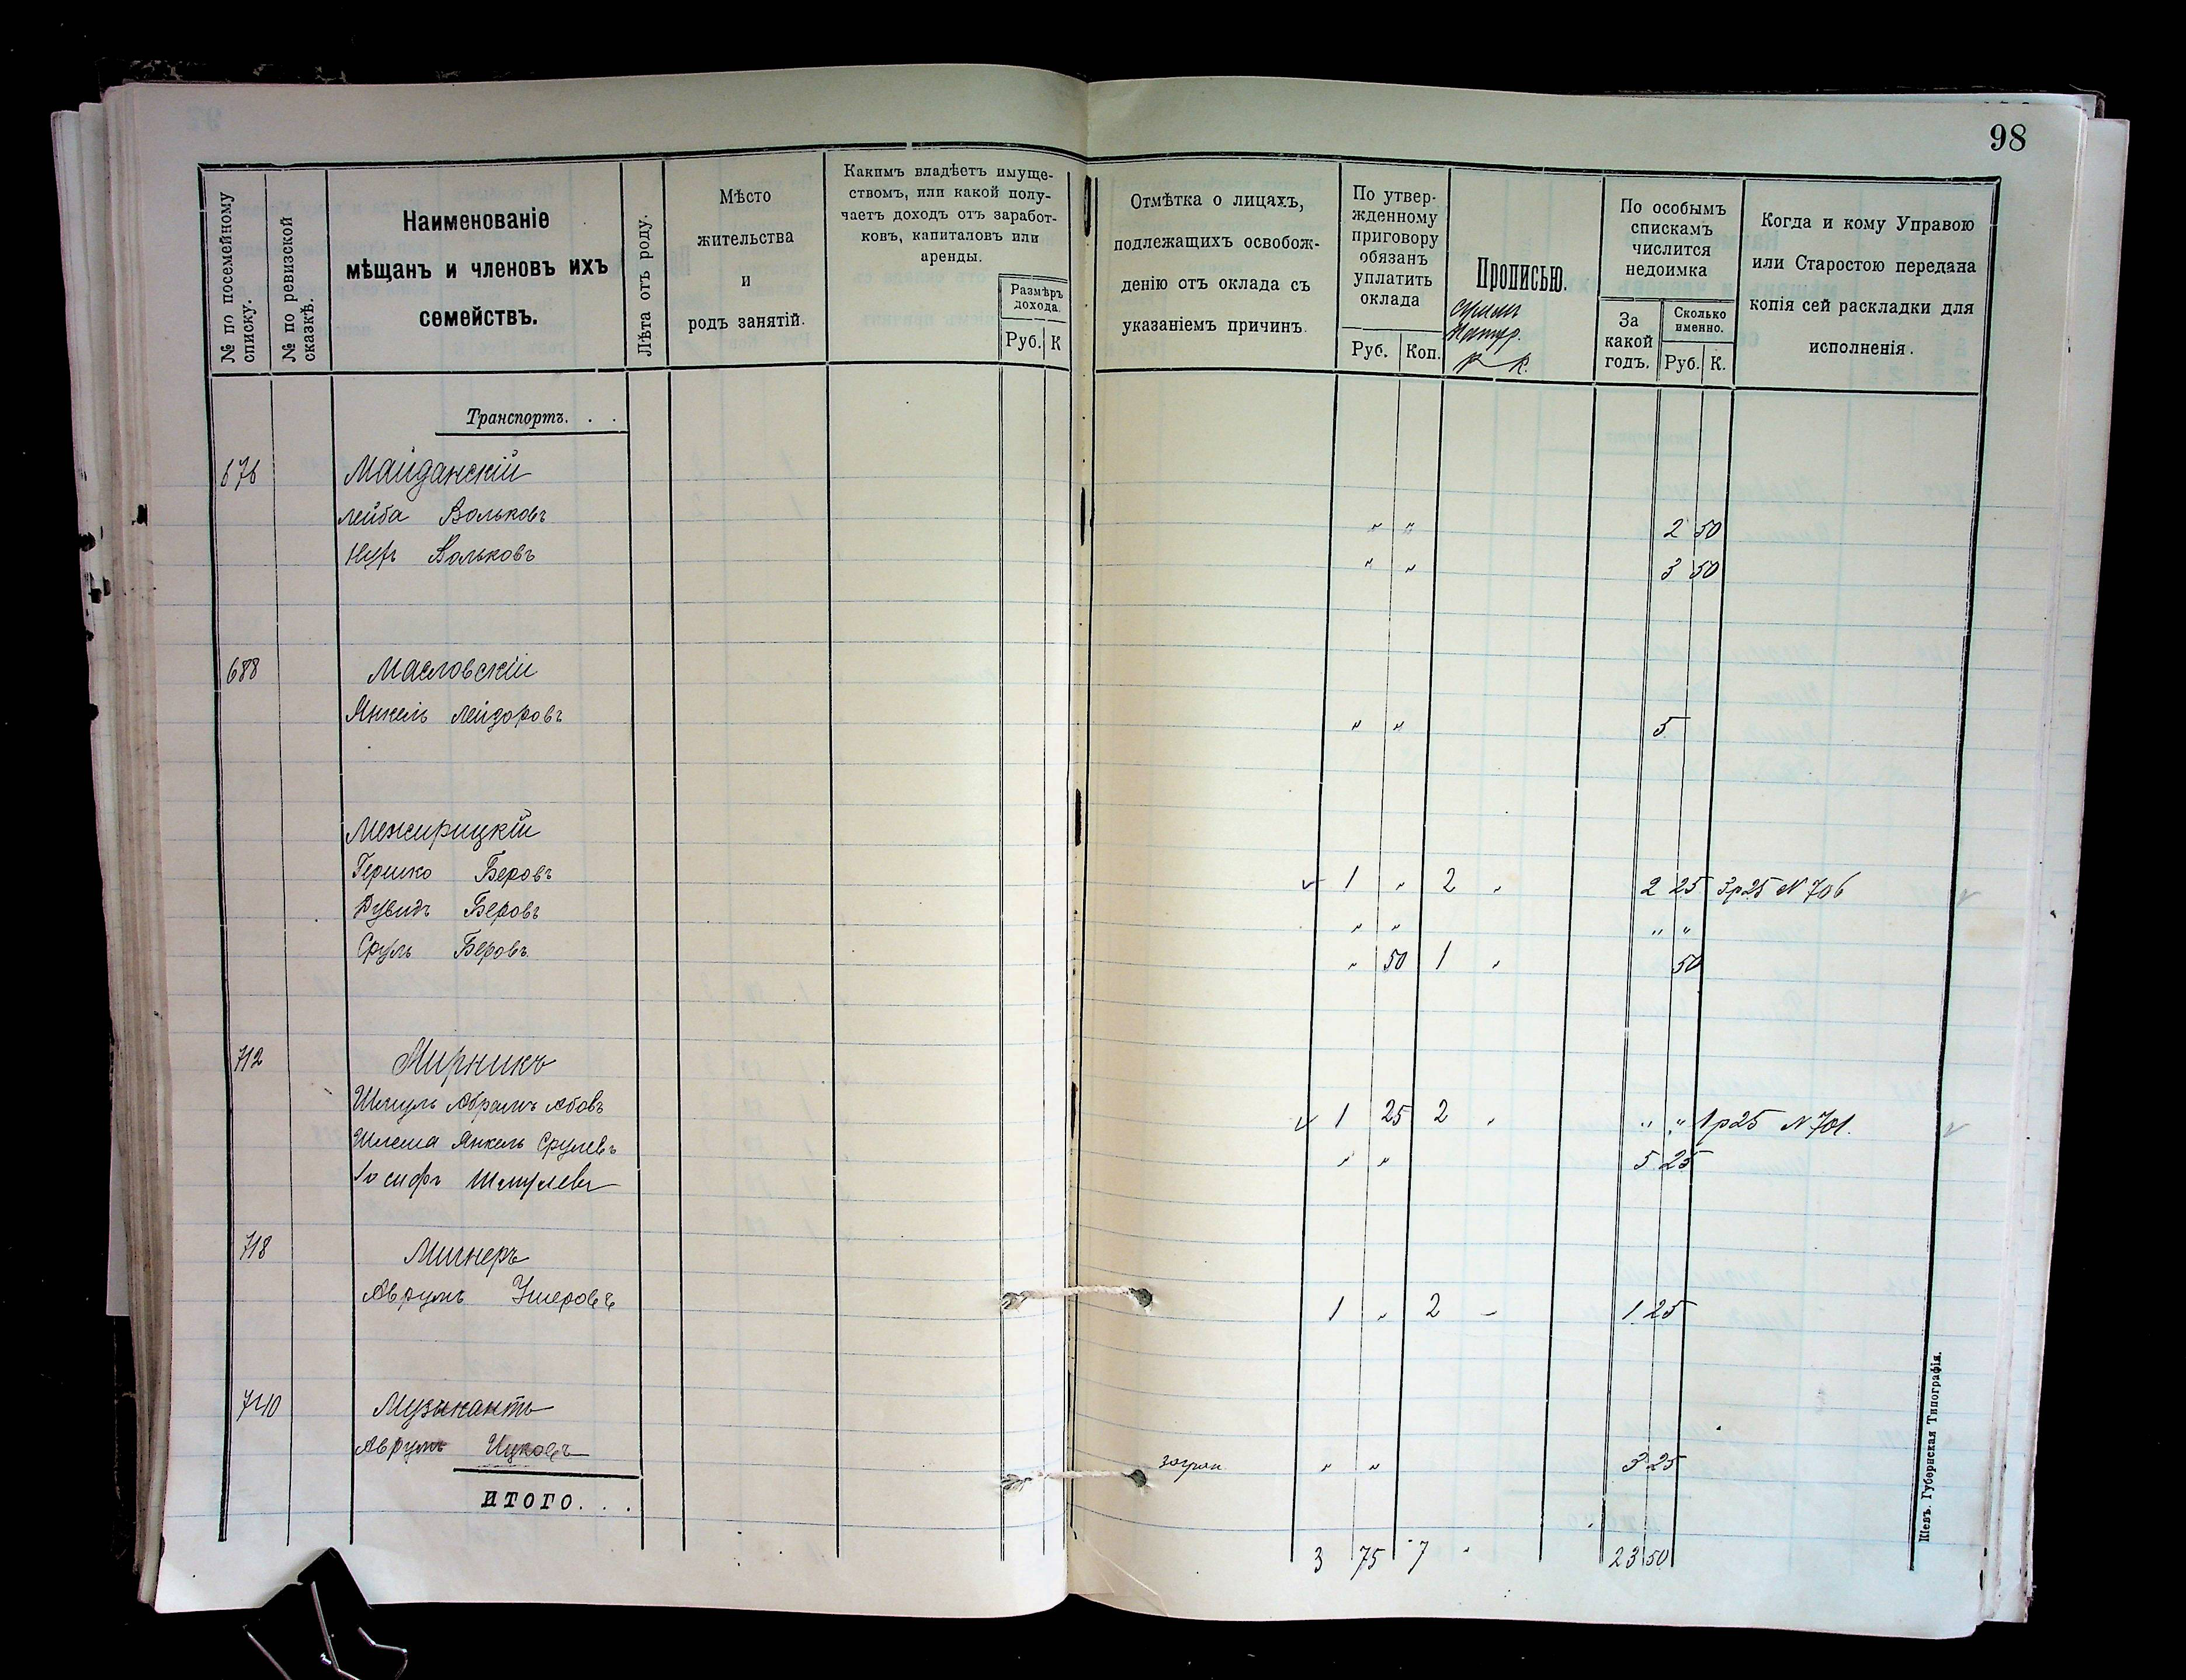 98
№ по посемейному списку.
№ по ревизской сказкѣ.
Наименованіе
мѣщанъ и членовъ ихъ
семействъ.
Лѣта отъ роду.
Мѣсто
жительства
и
родъ занятій.
Какимъ владѣетъ имуще-
ствомъ, или какой полу-
чаетъ доходъ отъ заработ-
ковъ, капиталовъ или
аренды.
Размѣръ
дохода.
Руб. К
Отмѣтка о лицахъ,
подлежащихъ освобож-
денію отъ оклада съ
указаніемъ причинъ.
По утвер-
жденному
приговору
обязанъ
уплатить
оклада
Руб. Коп.
Прописью.
р к.
По особымъ
спискамъ
числится
недоимка
За
какой
годъ.
Сколько
именно.
Руб. К.
Когда и кому Управою
или Старостою передана
копія сей раскладки для
исполненія.
Транспортъ. . .
676 Майданскій
Лейба Вольковъ " " 2 50
Вольковъ " " 3 50
688 Масловскій
Янкель Лейзоровъ " " 5
Межирицкій
Гершко Беровъ 1 " 2 " 2 25 3р25 N 706
Дувидъ Беровъ " " " "
Сруль Беровъ " 50 1 " 50
712 Мирникъ
Шмуль Абрамъ Абовъ 1 25 2 " " " 1р25 N 701.
Шлема Янкель Срулевъ " " 5 25
Іосифъ Шмулевъ
718 Мичнеръ
Аврумъ Ушеровъ 1 " 2 - 1 25
740 Музыкантъ
Аврумъ Ицковъ загран " " 3 25
ИТОГО. . .
3 75 7 " 23 50
Кіевъ. Губернская Типографія.